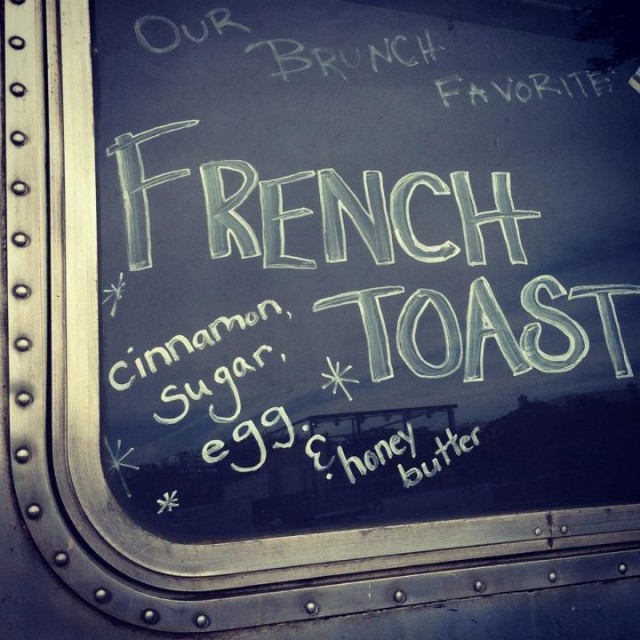 OUR BRUNCH FAVORITE
FRENCH
TOAST
cinnamon,
sugar,
egg.
& honey
butter